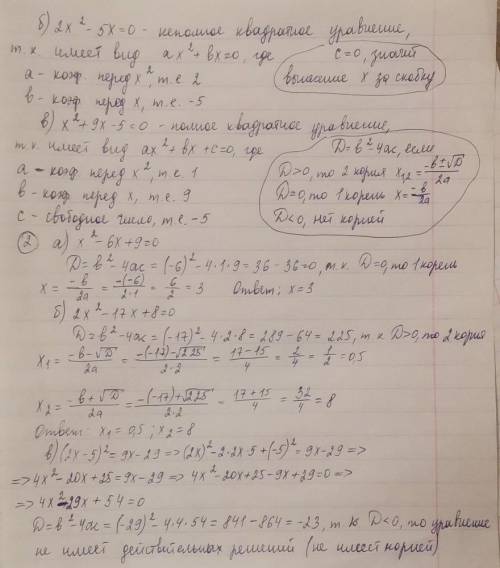 б) 2x² - 5x = 0 - неполное квадратное уравнение,
т.к. имеет вид ax² + bx = 0, где
a - коэф. перед x², т.е. 2
b - коэф. перед x, т.е. -5
c = 0, значит
выносим x за скобку
в) x² + 9x - 5 = 0 - полное квадратное уравнение,
т.к. имеет вид ax² + bx + c = 0, где
a - коэф. перед x², т.е. 1
b - коэф. перед x, т.е. 9
c - свободное число, т.е. -5
D = b² - 4ac, если
D > 0, то 2 корня x₁,₂ = (-b ± √D)/2a
D = 0, то 1 корень x = -b/2a
D < 0, нет корней
② а) x² - 6x + 9 = 0
D = b² - 4ac = (-6)² - 4·1·9 = 36 - 36 = 0, т.к. D = 0, то 1 корень
x = -b/2a = -(-6)/2·1 = 6/2 = 3 Ответ: x = 3
б) 2x² - 17x + 8 = 0
D = b² - 4ac = (-17)² - 4·2·8 = 289 - 64 = 225, т.к. D > 0, то 2 корня
x₁ = (-b - √D)/2a = (-(-17) - √225)/2·2 = (17 - 15)/4 = 2/4 = 1/2 = 0,5
x₂ = (-b + √D)/2a = (-(-17) + √225)/2·2 = (17 + 15)/4 = 32/4 = 8
Ответ: x₁ = 0,5; x₂ = 8
в) (2x - 5)² = 9x - 29 => (2x)² - 2·2x·5 + (-5)² = 9x - 29 =>
=> 4x² - 20x + 25 = 9x - 29 => 4x² - 20x + 25 - 9x + 29 = 0 =>
=> 4x² - 29x + 54 = 0
D = b² - 4ac = (-29)² - 4·4·54 = 841 - 864 = -23, т.к. D < 0, то уравнение
не имеет действительных решений (не имеет корней)